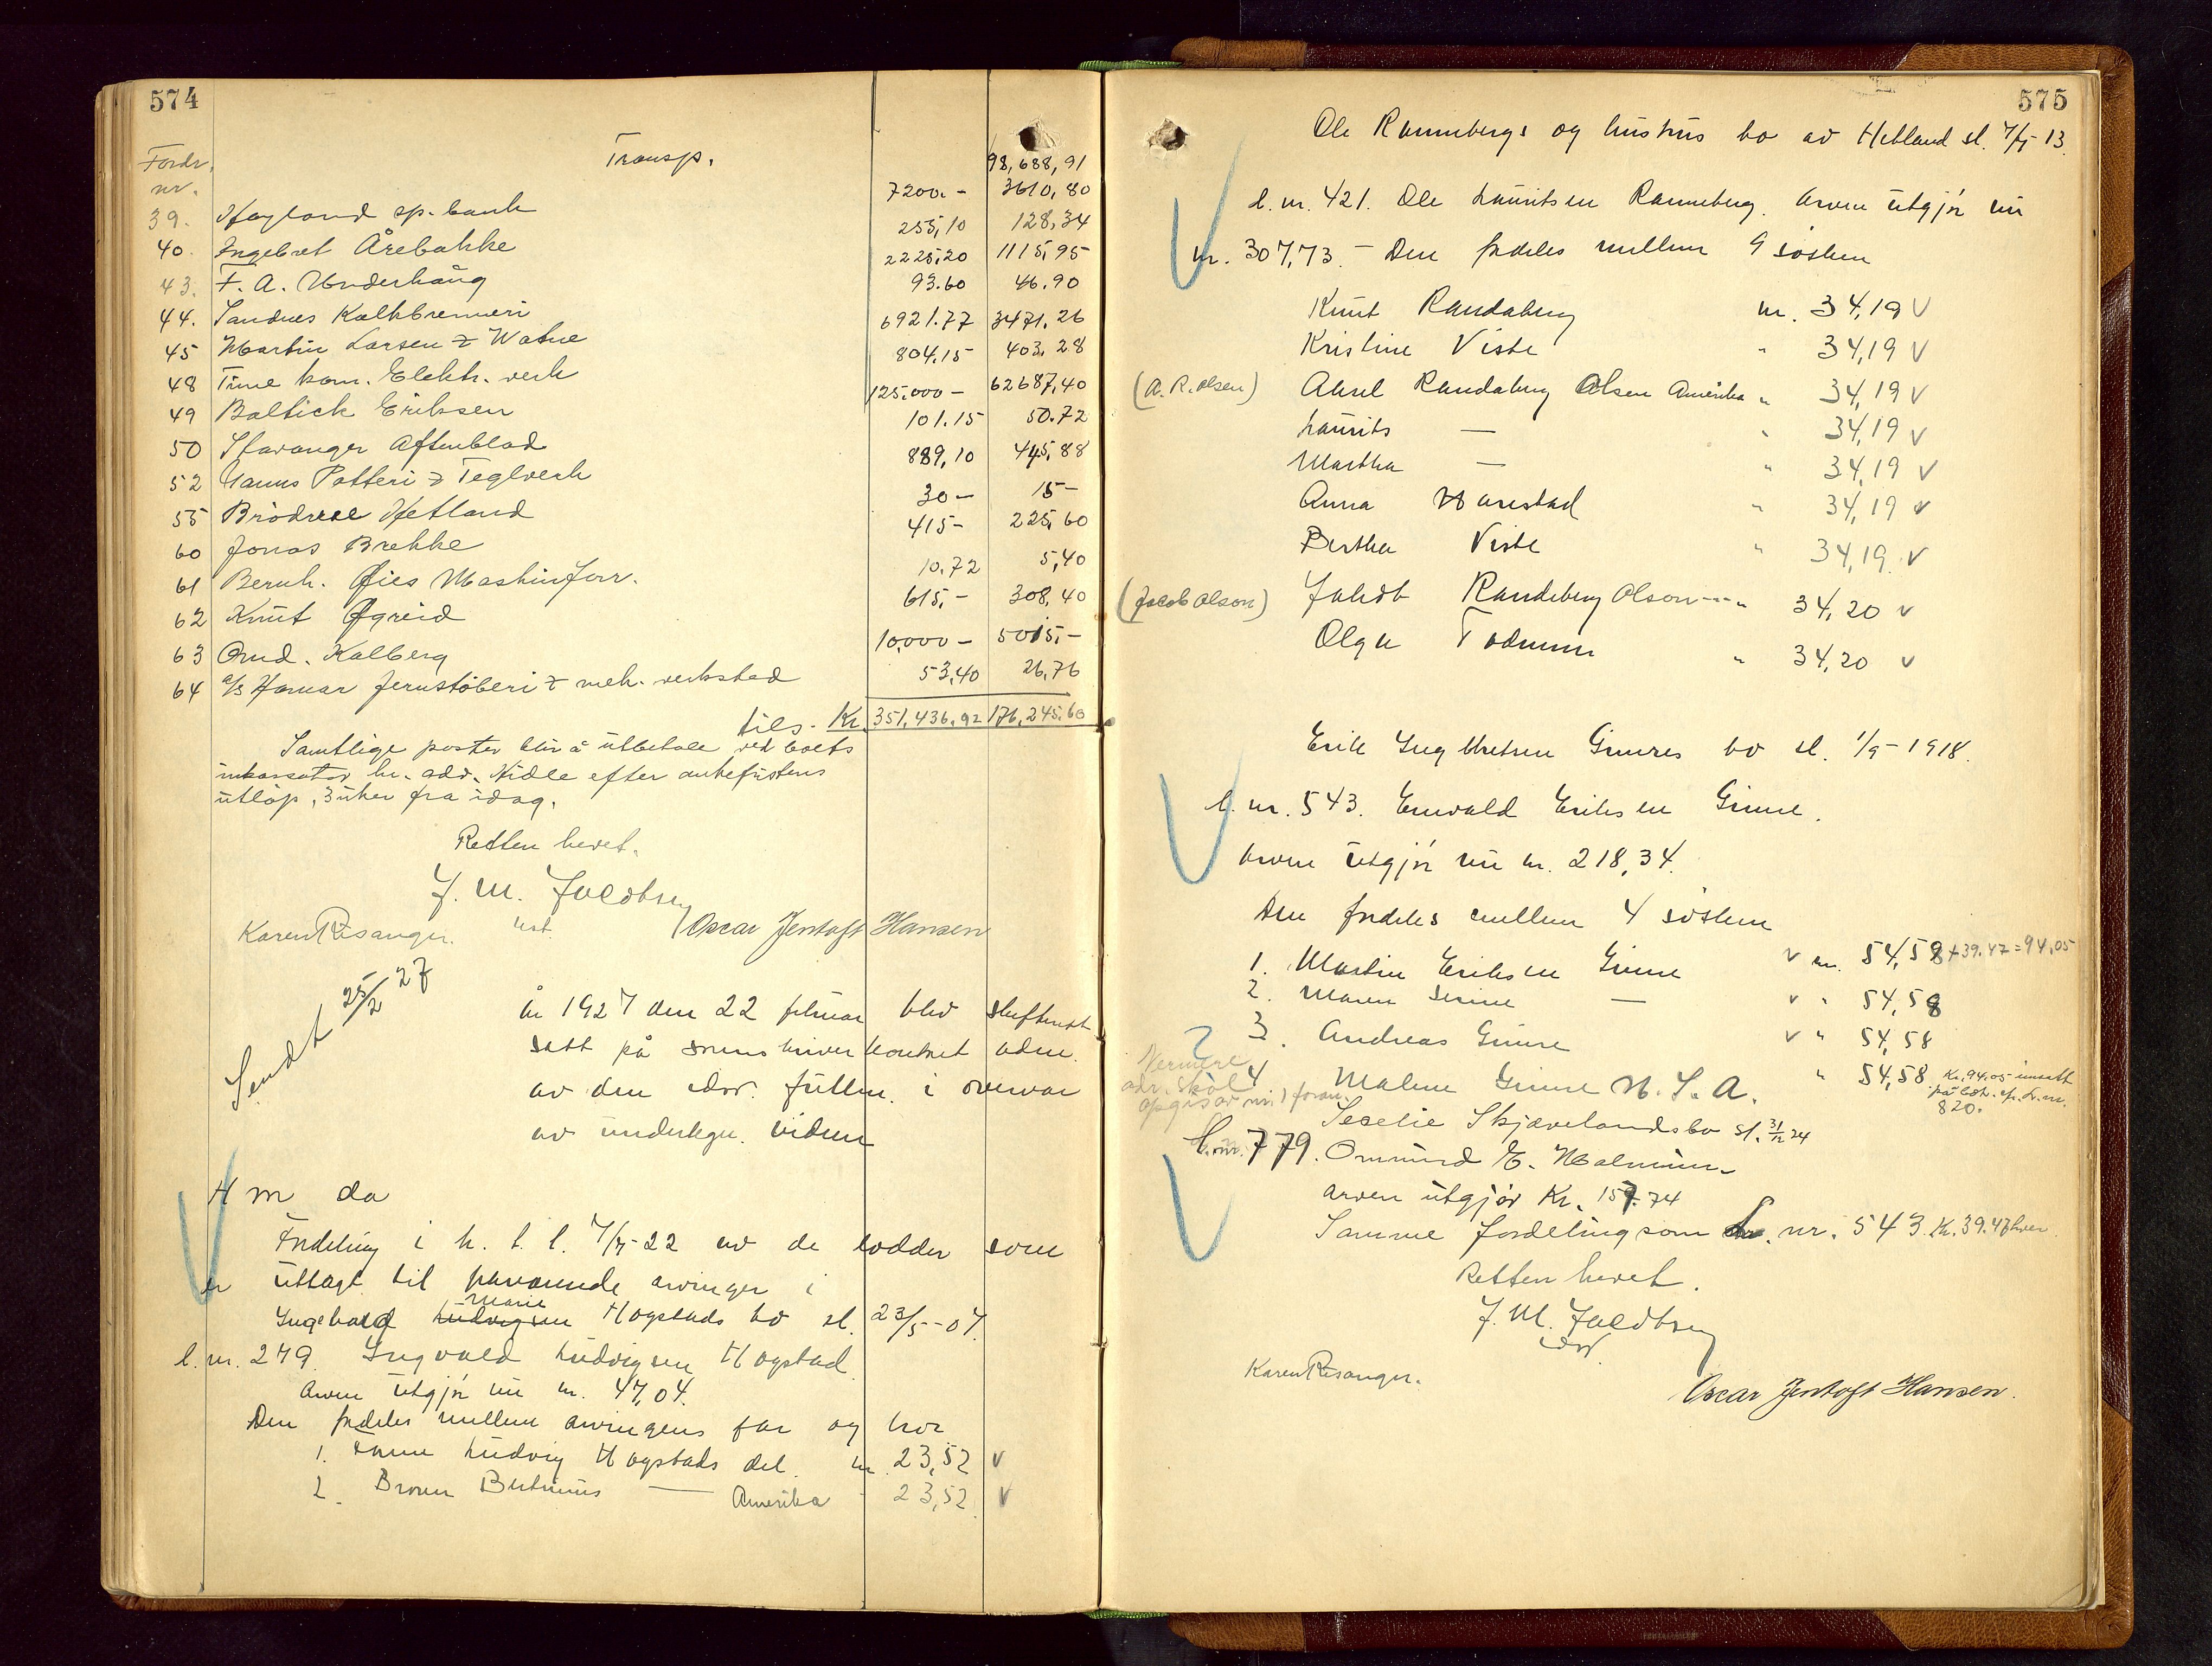 574
Transp. 98,688,91
Fordr. nr.
39. Høyland sp. bank 7200.- 3610,80
40. Ingebret Årebakke 255,10 128,34
43. F. A. Underhaug 2225,20 1115,95
44. Sandnes Kalkbrenneri 93.60 46.90
45 Martin Larsen & Watne 6921.77 3471.26
48 Time kom. Elektr. verk 804.15 403,28
49 Baltick Eriksen 125.000- 62687,40
50 Stavanger Aftenblad 101.15 50.72
52 Ganns Potteri & Teglverk 889,10 445,88
55 Brødrene Hetland 30- 15-
60 Jonas Brekke 415- 225,60
61 Bernh. Øies Maskinforr. 10.72 5,40
62 Knut Øgreid 615,- 308,40
63 Omd. Kalberg 10,000- 5015,-
64 a/s Hamar jernstøberi & mek. verksted 53,40 26,76
tils. Kr. 351,436,92 176,245,60
Samtlige poster blir å utbetale ved boets
inkassator hr. adv. Vidle efter ankefristens
utløp, 3 uker fra idag.
Retten hevet.
J. M. Jaldbrey
Karen Risanger. Oscar Jentoft Hansen
Sendt 25/2 27
År 1927 den 22 februar blev skifterett
satt på sorenskriverkontoret
av den edsv. fullm. i overvær
av undertegn. vidner
Hm da
Fordeling i h. t. l. 7/7-22 av de lodder som
er utlagt til fraværende arvinger i
Ingeborg Marie Hogstads bo sl. 23/5-07.
l. nr. 279. Ingvald Ludvigsen Hogstad
Arven utgjør nu kr. 47,04.
Den fordeles mellem arvingens far og bror
1. Faren Ludvig Hogstads del. kr. 23,52 v
2. Broren Bertinius — Amerika 23,52 v
575
Ole Rannebergs og hustrus bo av Hetland sl. 7/5-13.
l. nr. 421. Ole Lauritsen Ranneberg. Arven utgjør nu
kr. 307,73. - Den fordeles mellem 9 søsken
Knut Randaberg kr. 34,19 v
Kristine Viste " 34,19 v
(A. R. Olsen) Aksel Randaberg Olsen Amerika " 34,19 v
Laurits — " 34,19 v
Martha — " 34,19 v
Anna Harestad " 34,19 v
Bertha Viste " 34,19 v
(Jacob Olson) Jakob Randeberg Olson --- " 34,20 v
Olga Todnem " 34,20 v
Erik Ingebretsen Gimres bo sl. 1/9-1918.
l. nr. 543. Enevald Eriksen Gimre.
Arven utgjør nu kr. 218,34.
Den fordeles mellem 4 søsken
1. Martin Eriksen Gimre v kr. 54,58 + 39.47 = 94,05
2. Maren Serine — v " 54,58
3. Andreas Gimre v " 54,58
4 Malene Gimre U. S. A. " 54,58 Kr. 94.05 innsatt
på bok nr.
820.
Nermere
adr. skal
opgis av nr. 1 foran.
Secelie Skjævelandsbo sl. 31/12 24
L. nr. 779. Ommund E. Malmim.
Arven utgjør Kr. 157.74
Samme fordeling som L. nr. 543. Kr. 39.47 hver
Retten hevet.
J. M. Jaldbrey
edsv.
Karen Risanger.
Oscar Jentoft Hansen.